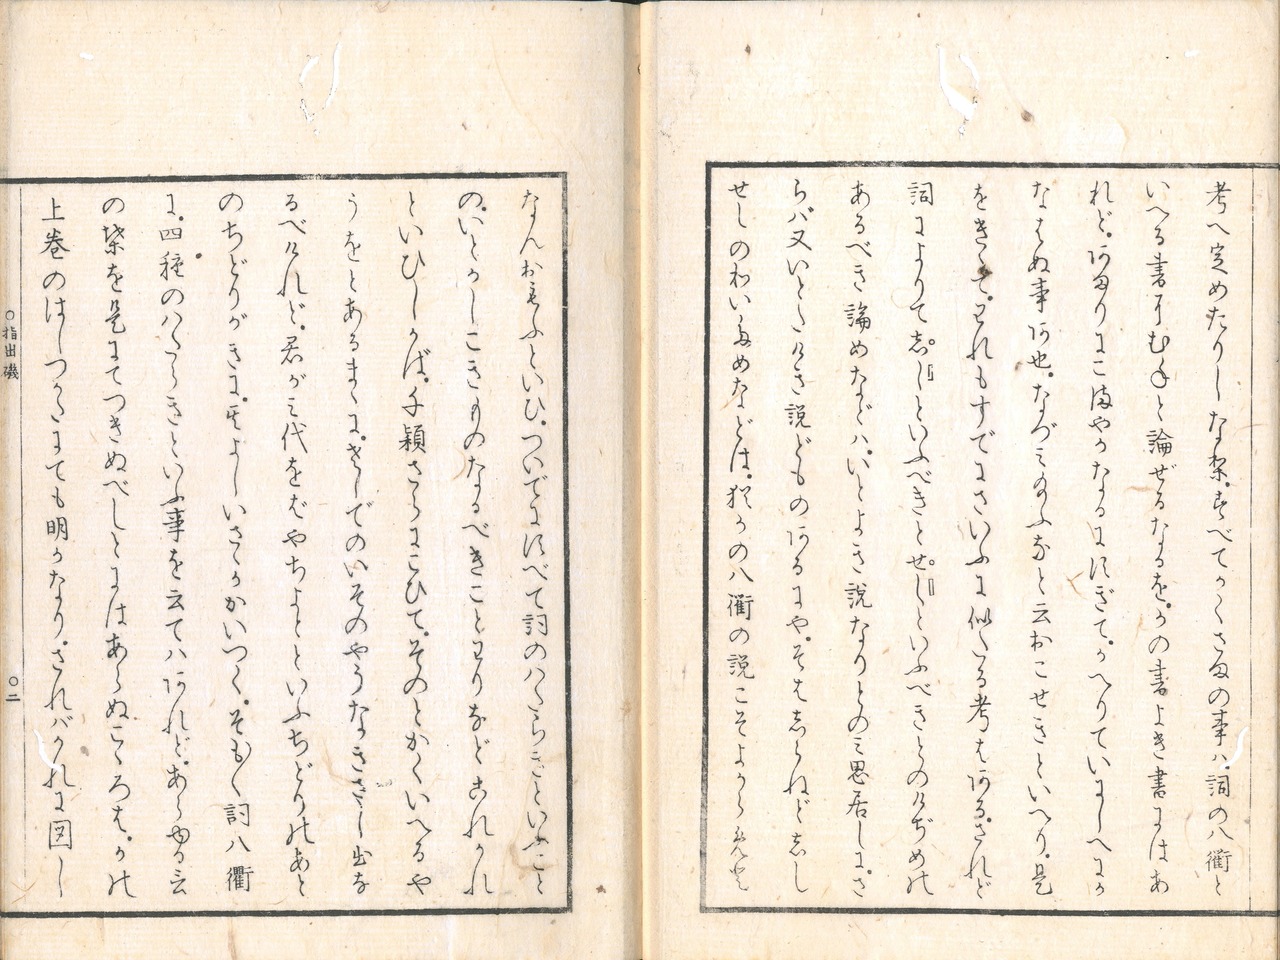 考へ定めたりしなん。すべてかくさまの事ハ。詞の八衢と
いへる書にむねと論ぜるなるを。かの書よき書にはあ
れど。あまりにこまやかなるにすぎて。かへりていにしへにか
なはぬ事あ也。なづみ給ふなと云おこせきといへり。是
をきゝて。われもすでにさいふに似たる考はある。されど
詞によりて志しといふべきとせしといふべきとのけぢめの
あるべき論めなどハ。いとよき説なりとのミ思居しに。さ
らバ又いとたけき説どものあるにや。そはしらねど志し
せしのわいだめなどは。猶かの八衢の説こそよからめと
なんおもふといひ。ついでにすべて詞のはたらきごといふこと
の。いとかしこきものなるべきことわりなどこれかれ
といひしかば。千穎さらにこひて。そのとかくいへるや
うをとあるまゝに。さしでのいそのやうなきさし出な
るべけれど。君がミ代をばやちよといふちどりのあと
のちどりがきに。其よしいさゝかかいつく。そも〳〵詞八衢
に。四種のはたらきといふ事を云てハあれど。あらゆる言
の葉を是にてつきぬべしとにはあらぬこゝろは。かの
上巻のはしつかたにても明かなり。さればかれに図し
○指出磯
○二